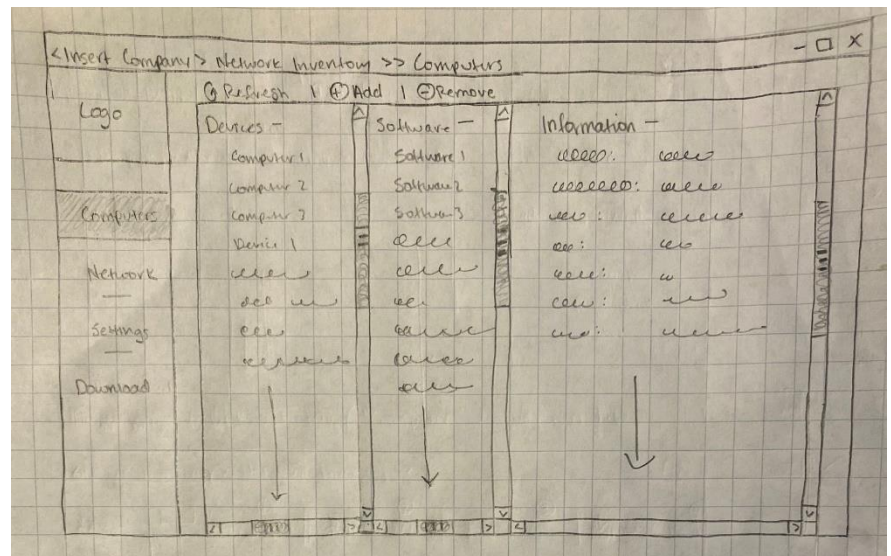 <Insert Company> Network Inventory >> Computers
Refresh | Add | Remove
Logo
Computers
Network
Settings
Download
Devices -
Computer 1
Computer 2
Computer 3
Device 1
Software -
Software 1
Software 2
Software 3
Information -